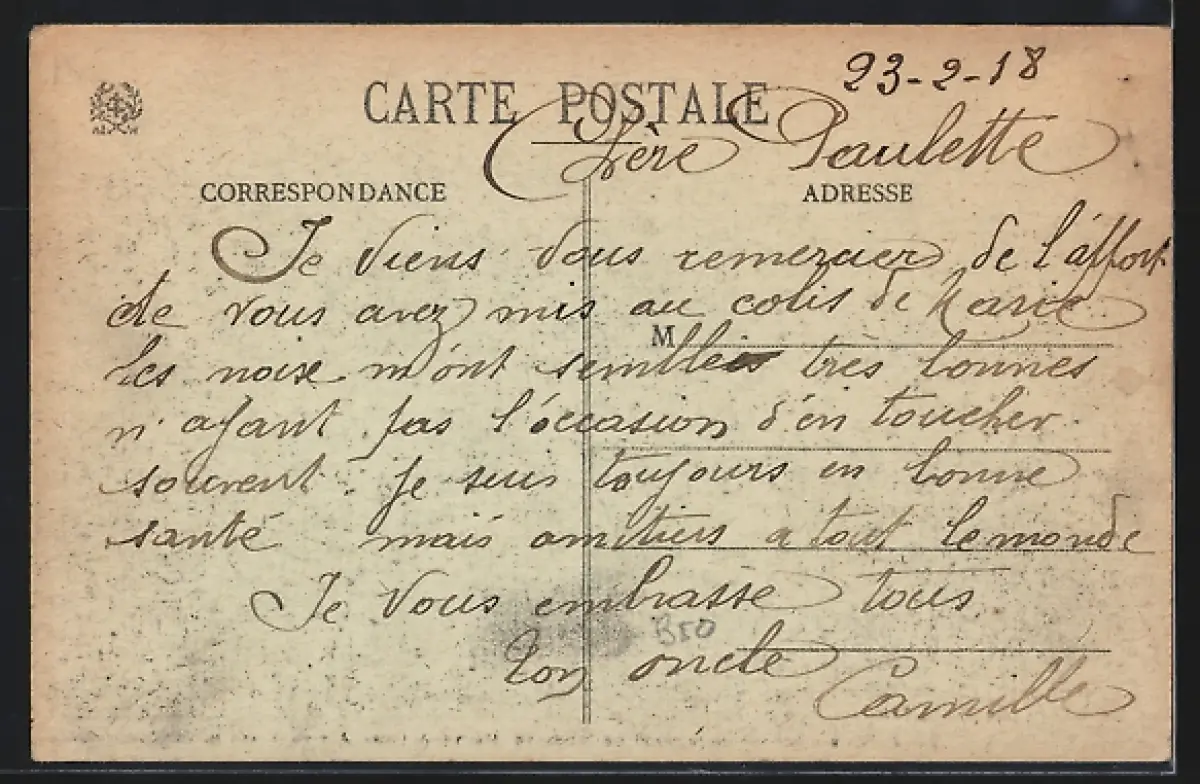 23-2-18
CARTE POSTALE
Chère Paulette
CORRESPONDANCE ADRESSE
Je viens vous remercier de l'áffort
de vous avez mis au colis de Marie
M
les noix m'ont semblés très bonnes
n'ayant pas l'occasion d'en toucher
souvent. Je suis toujours en bonne
santé mais amitiers a tout le monde
Je vous embrasse tous
B50
Ton oncle
Camille